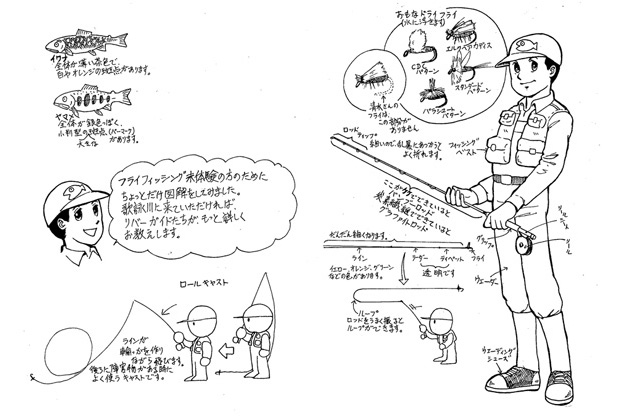 イワナ
全体が薄い茶色で、
白やオレンジの斑点があります。
ヤマメ
全体が銀色っぽく、
小判型の斑点(パーマーク)
があります。
大きな
フライフィッシング未体験の方のために
ちょっとだけ図解をしてみました。
歌詠川に来ていただければ、
リバーガイドたちが、もっと詳しく
お教えします。
ロールキャスト
ラインが
輪っかを作り
ながら飛びます。
後ろに障害物がある時に
よく使うキャストです。
おもなドライフライ
(水に浮きます)
CDC
パターン
エルクヘアカディス
スタンダード
パターン
パラシュート
パターン
フライは、
この部分が
ありません
ロッド
ティップ
細いので、乱暴にあつかうと
よく折れます。
フィッシング
ベスト
ここが竹でできていると
バンブーロッド
炭素繊維でできていると
グラファイトロッド
グリップ
リール
ウェーダー
だんだん細くなります。
ライン
リーダー
ティペット
フライ
イエロー、オレンジ、グリーン
などの色があります。
透明です
ループ
ロッドをうまく振ると
ループができます。
ウェーディング
シューズ